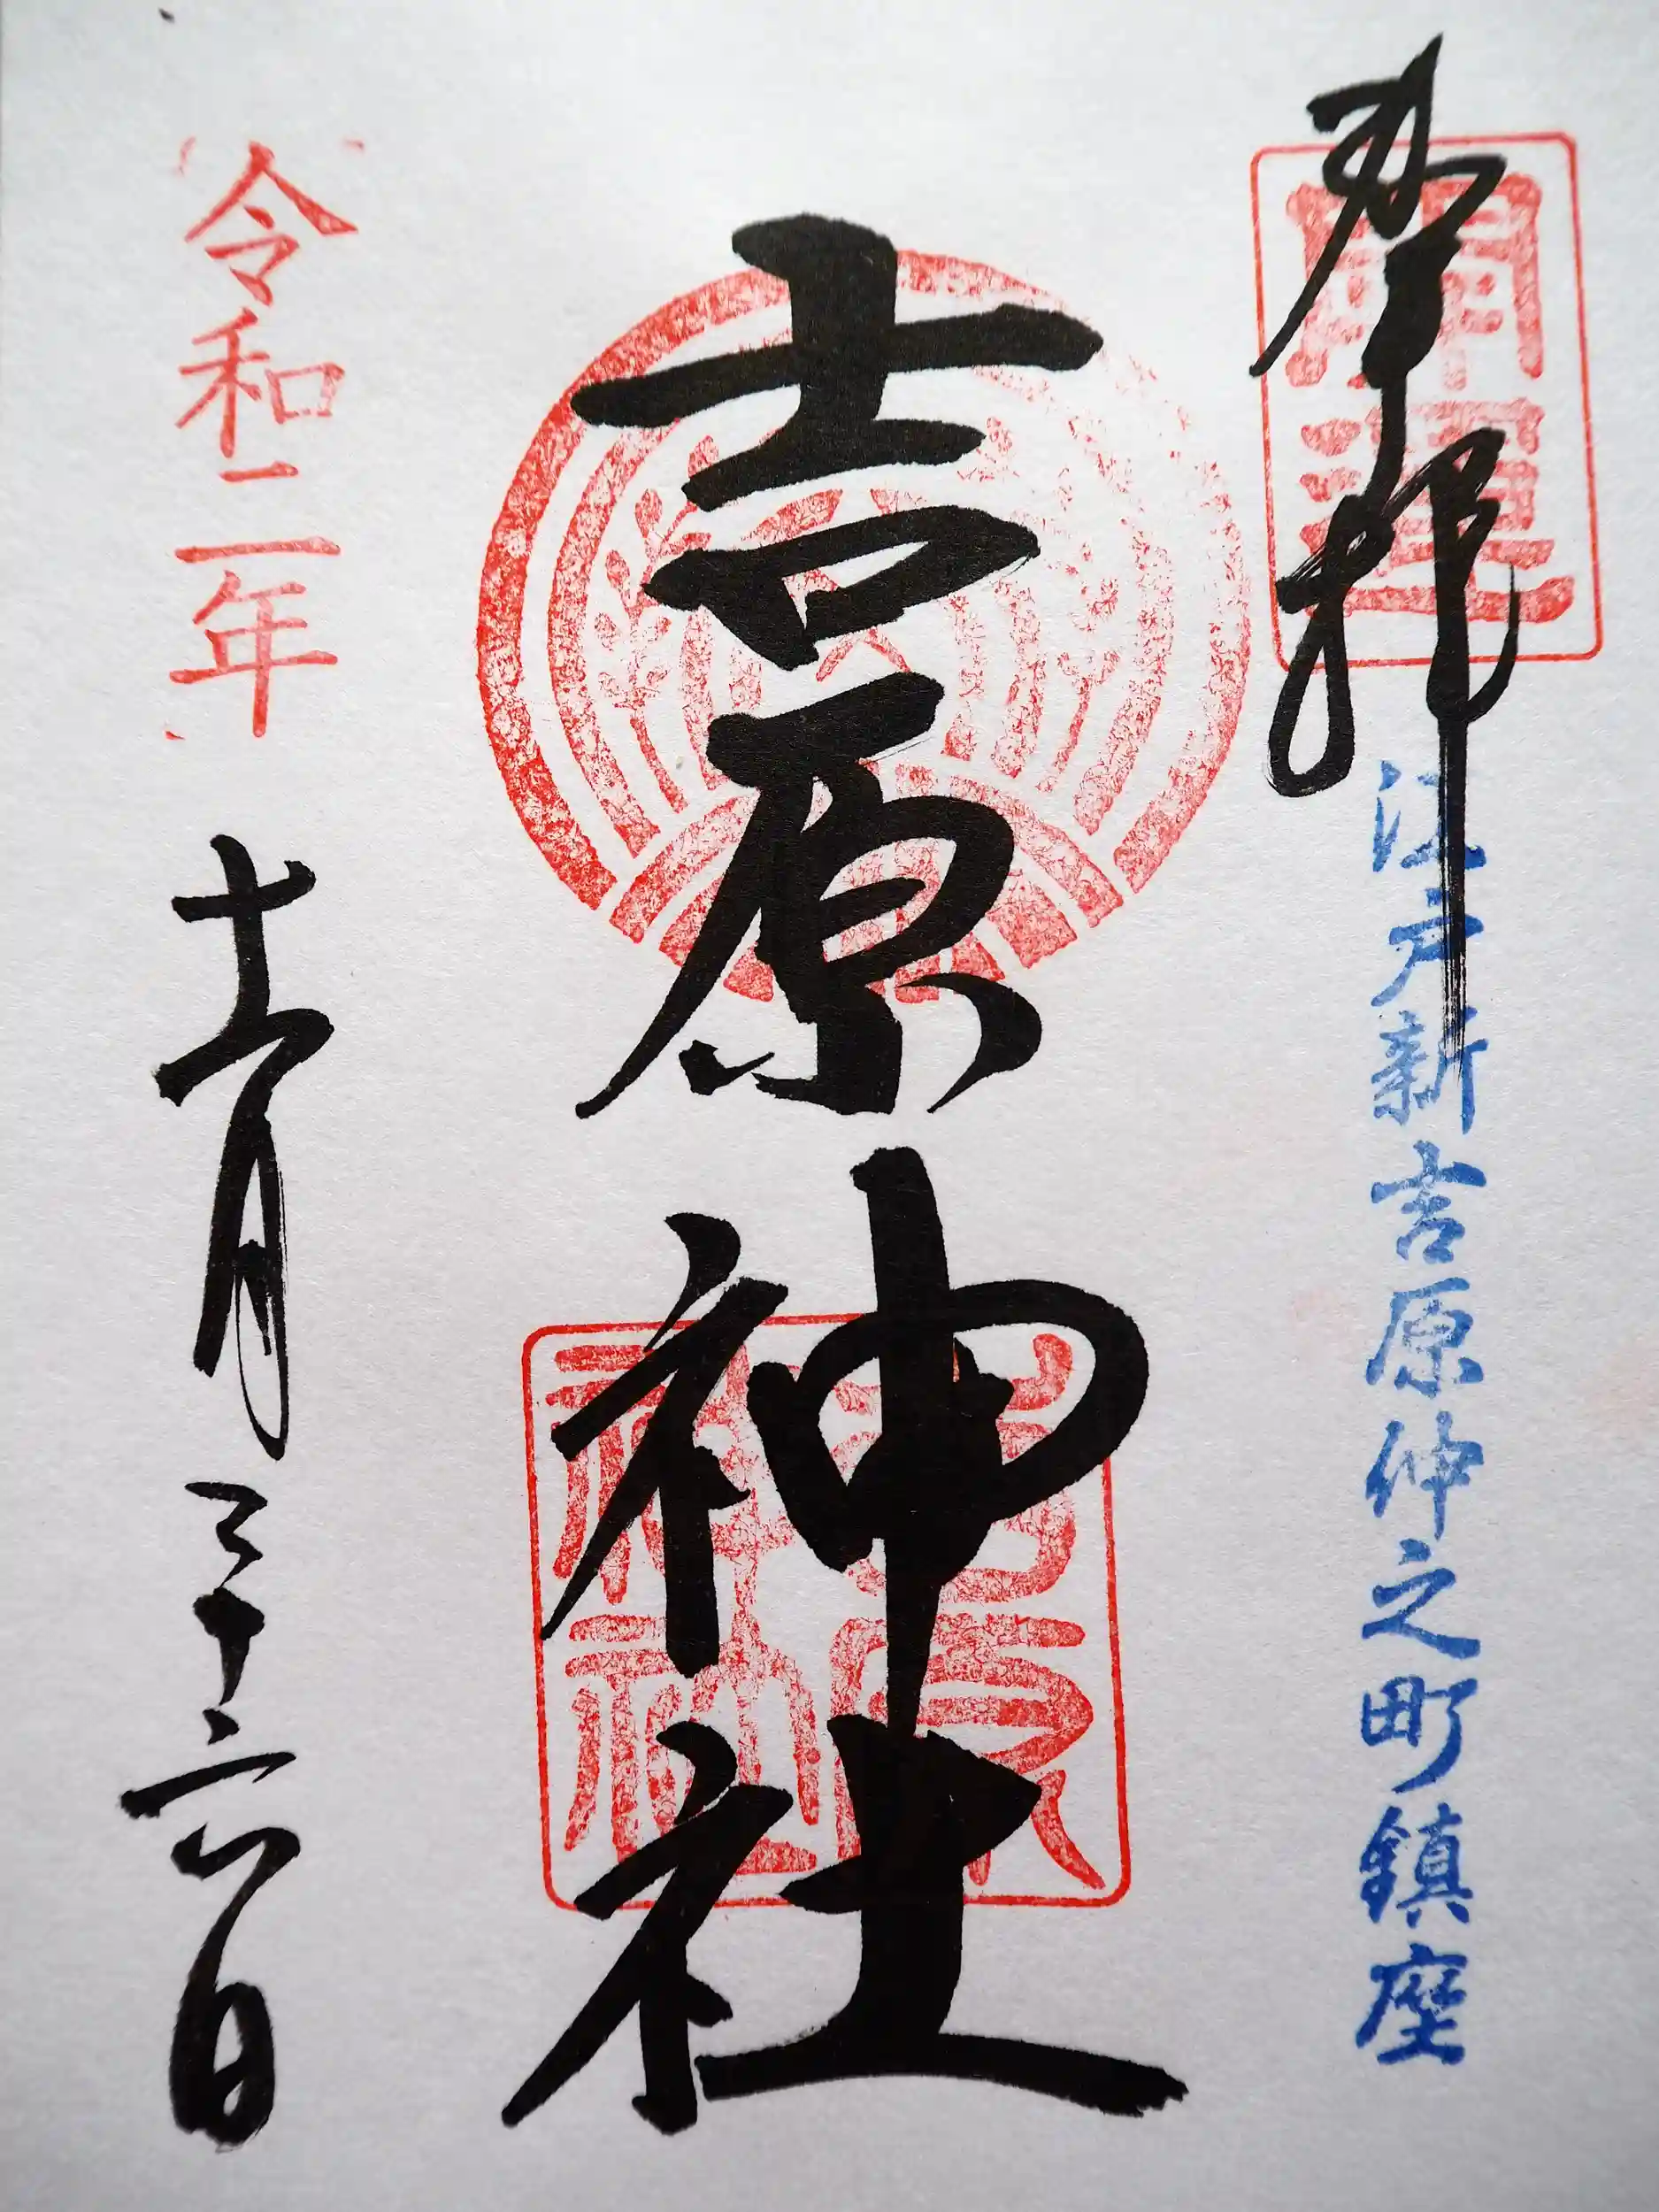 奉拝
開運
江戸新吉原仲之町鎮座
吉原神社
吉原
神社
令和二年
十一月二十六日